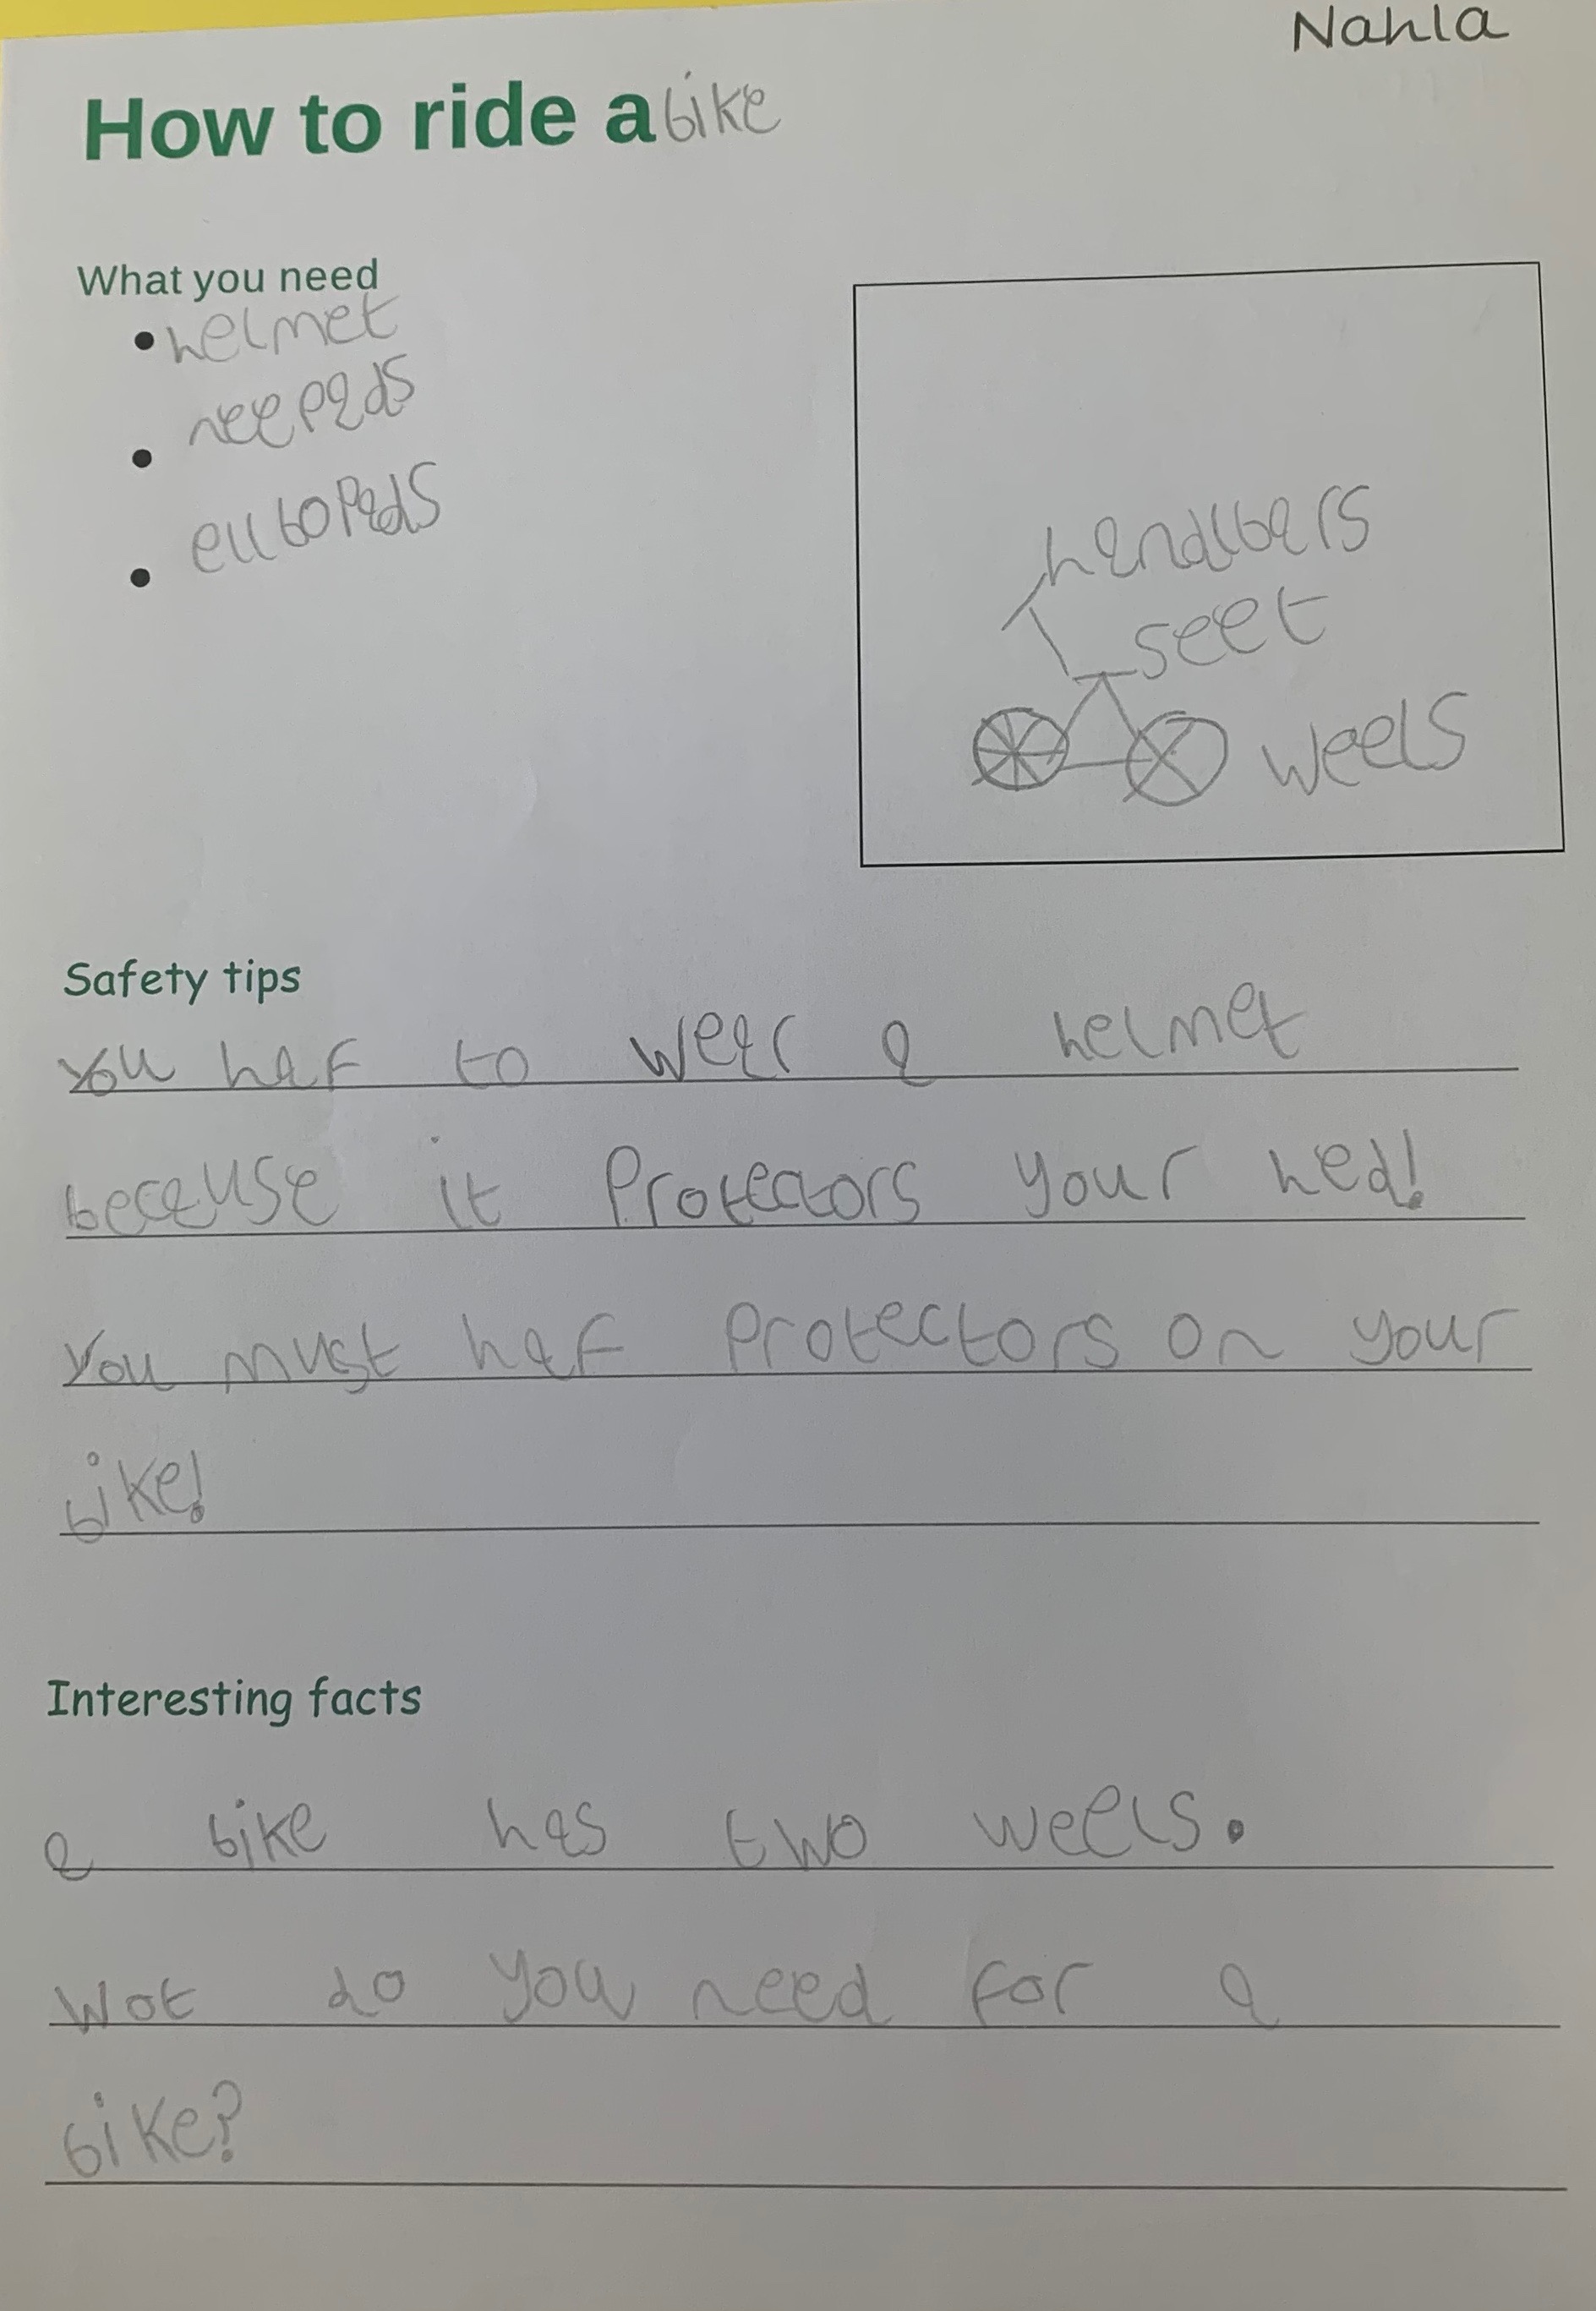 Nahla
How to ride a bike
What you need
• helmet
• neepads
• ellbopads
handlbars
seet
weels
Safety tips
You haf to wear a helmet
because it Protectors your hed!
You must haf Protectors on your
bike!
Interesting facts
a bike has two weels.
Wot do you need for a
bike?